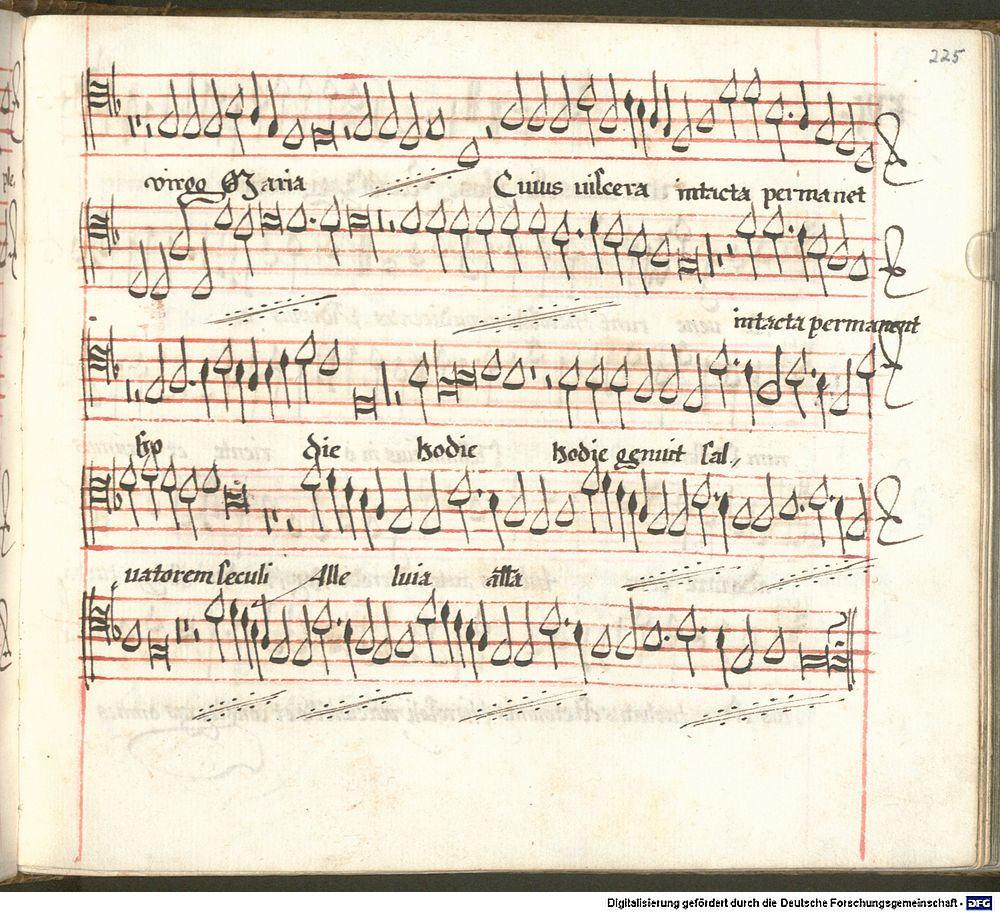 225
virgo Maria Cuius viscera intacta permanet
intacta permanent
ho die hodie hodie genuit sal,
uatorem seculi Alle luia alla
Digitalisierung gefördert durch die Deutsche Forschungsgemeinschaft - DFG